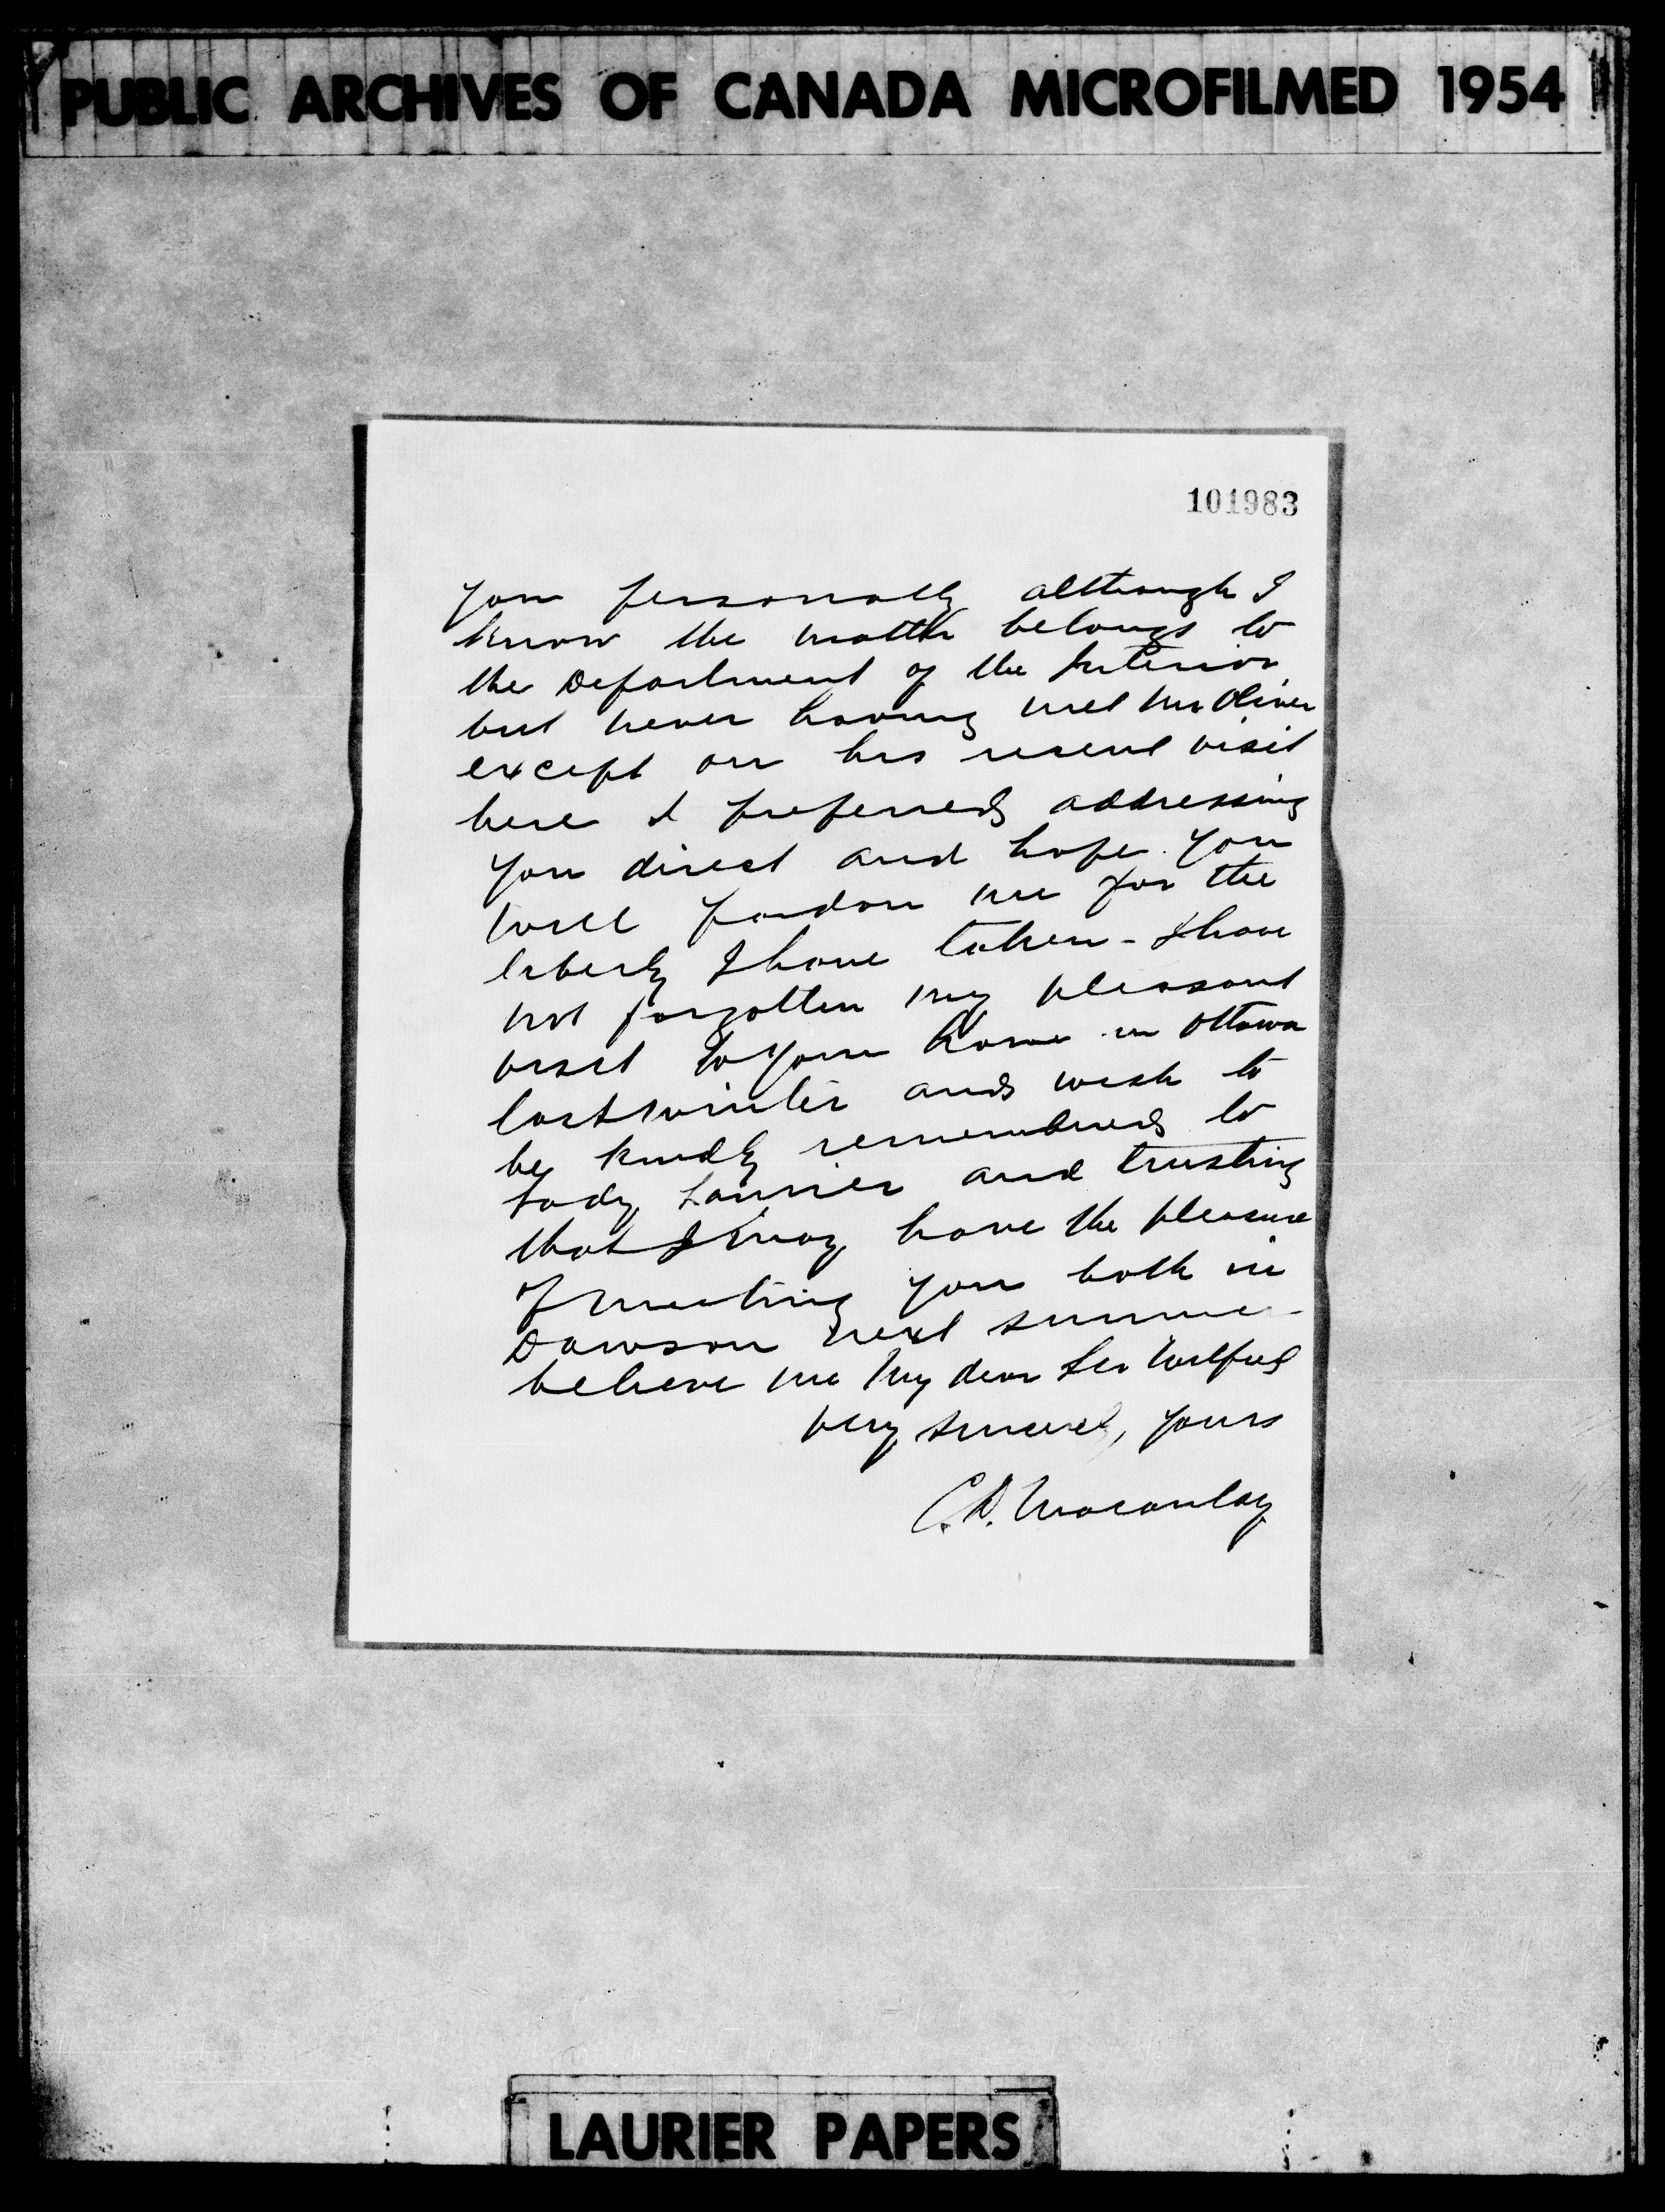 PUBLIC ARCHIVES OF CANADA MICROFILMED 1954
101983
you personally although I
know the matter belongs to
the Department of the Interior
but never having met Mr Oliver
except on his recent visit
here I preferred addressing
you direct and hope you
will pardon me for the
liberty I have taken - I have
not forgotten my pleasant
visit to your home in Ottawa
last winter and wish to
be kindly remembered to
Lady Laurier and trusting
that I may have the pleasure
of meeting you both in
Dawson next summer
believe me my dear Sir Wilfrid
very sincerely yours
C.D. Macaulay
LAURIER PAPERS